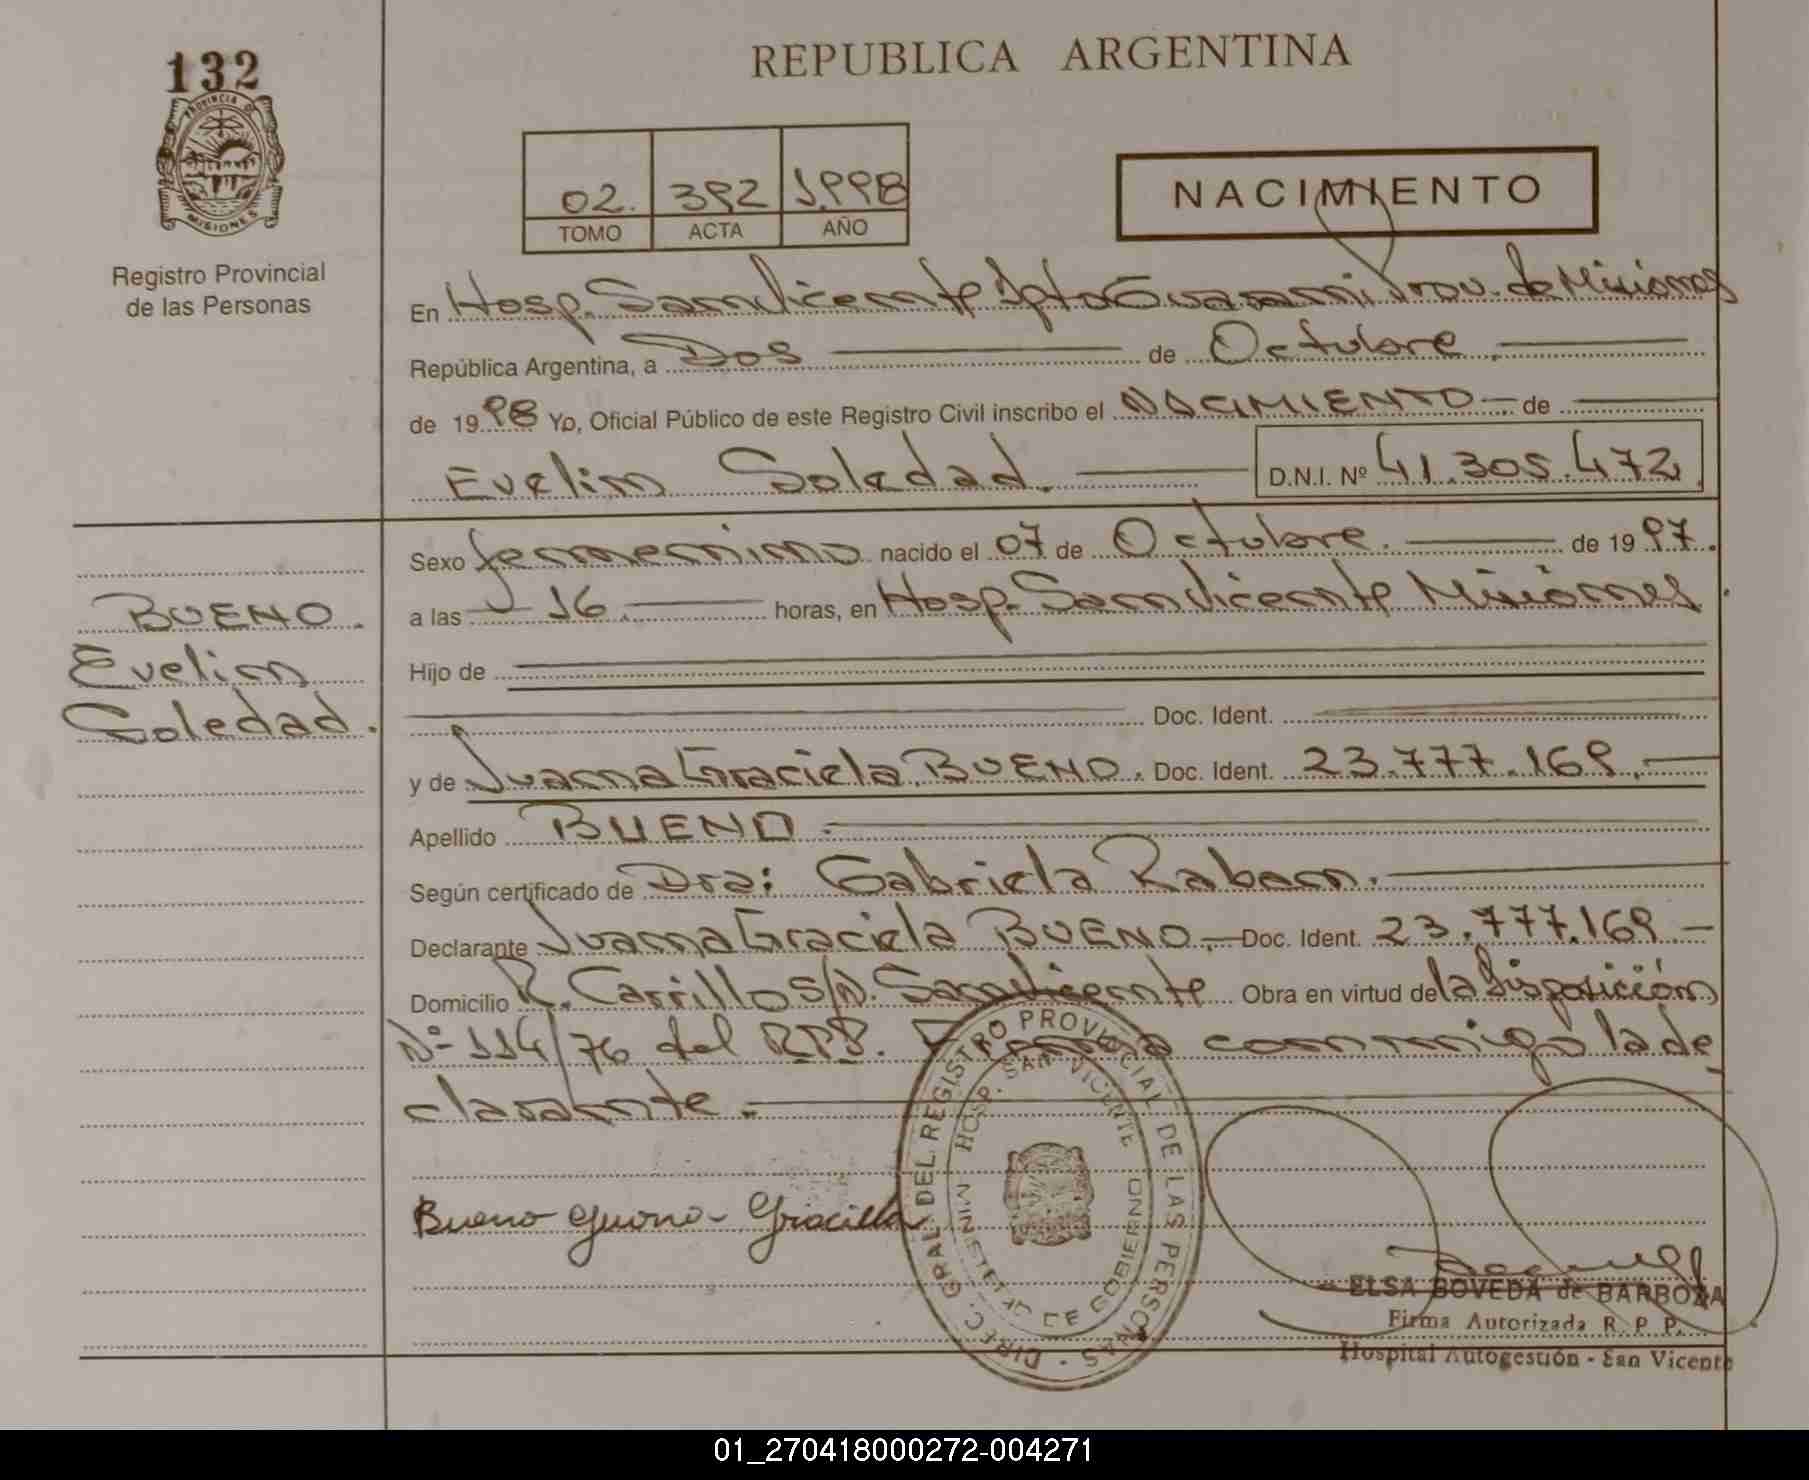 132
PROVINCIA DE
MISIONES
Registro Provincial
de las Personas
REPUBLICA ARGENTINA
02. 392 1.998
TOMO ACTA AÑO
NACIMIENTO
En Hosp. San Vicente Dpto Guaraní Prov. de Misiones
República Argentina, a Dos de Octubre
de 1998 Yo, Oficial Público de este Registro Civil inscribo el NACIMIENTO de
Evelin Soledad. D.N.I. Nº 41.305.472
Sexo femenino nacido el 07 de Octubre. de 1997.
a las 16 horas, en Hosp. San Vicente Misiones.
Hijo de
Doc. Ident.
y de Juana Graciela BUENO. Doc. Ident. 23.777.169.
Apellido BUENO
Según certificado de Dra: Gabriela Raban.
Declarante Juana Graciela BUENO, Doc. Ident. 23.777.169
Domicilio R. Carrillo S/N. San Vicente Obra en virtud de la Disposición
Nº 114/76 del R.P.P. Firma conmigo la de
clarante.
BUENO.
Evelin
Soledad.
Bueno Juana Graciela
DIREC. GRAL. DEL REGISTRO PROVINCIAL DE LAS PERSONAS
HOSP. SAN VICENTE
MINISTERIO DE GOBIERNO
ELSA BOVEDA de BARBOZA
Firma Autorizada R. P. P.
Hospital Autogestión - San Vicente
01_270418000272-004271